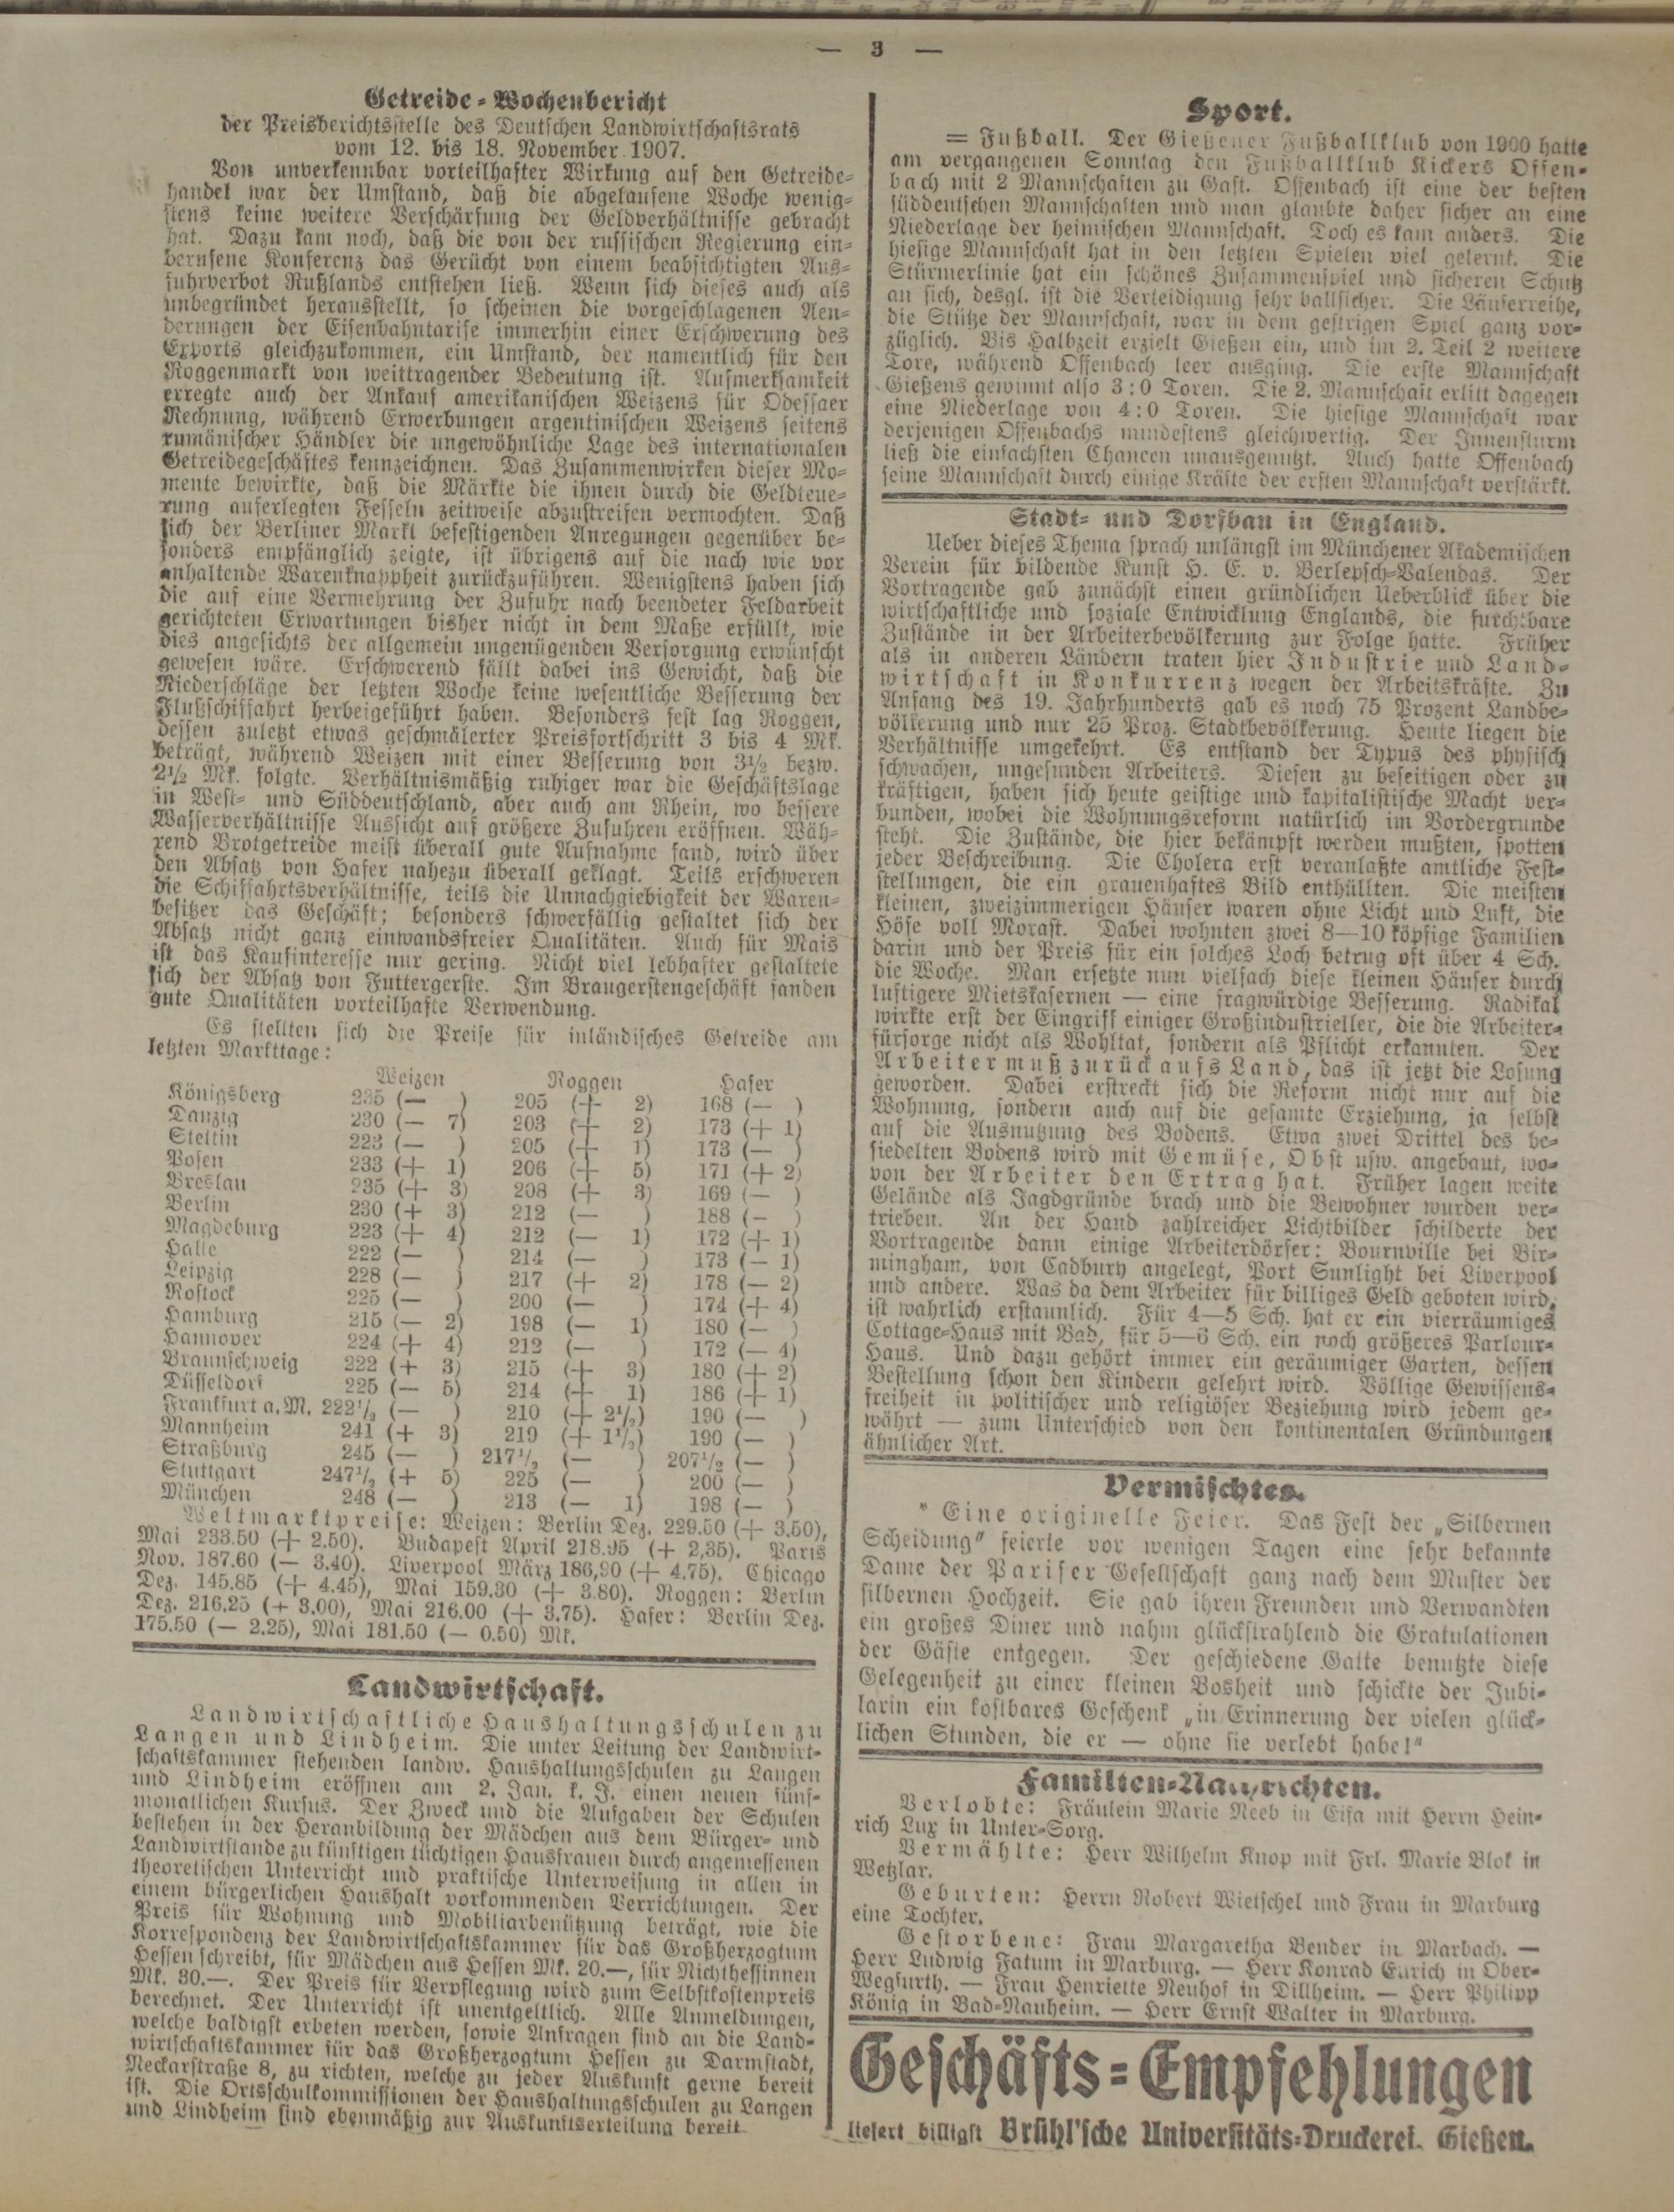 — 3 —
Getreide-Wochenbericht
der Preisberichtsstelle des Deutschen Landwirtschaftsrats
vom 12. bis 18. November 1907.
Von unverkennbar vorteilhafter Wirkung auf den Getreide-
handel war der Umstand, daß die abgelaufene Woche wenig-
stens keine weitere Verschärfung der Geldverhältnisse gebracht
hat. Dazu kam noch, daß die von der russischen Regierung ein-
berufene Konferenz das Gerücht von einem beabsichtigten Aus-
fuhrverbot Rußlands entstehen ließ. Wenn sich dieses auch als
unbegründet herausstellt, so scheinen die vorgeschlagenen Aen-
derungen der Eisenbahntarife immerhin einer Erschwerung des
Exports gleichzukommen, ein Umstand, der namentlich für den
Roggenmarkt von weittragender Bedeutung ist. Aufmerksamkeit
erregte auch der Ankauf amerikanischen Weizens für Odessaer
Rechnung, während Erwerbungen argentinischen Weizens seitens
rumänischer Händler die ungewöhnliche Lage des internationalen
Getreidegeschäftes kennzeichnen. Das Zusammenwirken dieser Mo-
mente bewirkte, daß die Märkte die ihnen durch die Geldteue-
rung auferlegten Fesseln zeitweise abzustreifen vermochten. Daß
sich der Berliner Markt befestigenden Anregungen gegenüber be-
sonders empfänglich zeigte, ist übrigens auf die nach wie vor
anhaltende Warenknappheit zurückzuführen. Wenigstens haben sich
die auf eine Vermehrung der Zufuhr nach beendeter Feldarbeit
gerichteten Erwartungen bisher nicht in dem Maße erfüllt, wie
dies angesichts der allgemein ungenügenden Versorgung erwünscht
gewesen wäre. Erschwerend fällt dabei ins Gewicht, daß die
Niederschläge der letzten Woche keine wesentliche Besserung der
Flußschiffahrt herbeigeführt haben. Besonders fest lag Roggen,
dessen zuletzt etwas geschmälerter Preisfortschritt 3 bis 4 Mk.
beträgt, während Weizen mit einer Besserung von 3½ bezw.
2½ Mk. folgte. Verhältnismäßig ruhiger war die Geschäftslage
in West- und Süddeutschland, aber auch am Rhein, wo bessere
Wasserverhältnisse Aussicht auf größere Zufuhren eröffnen. Wäh-
rend Brotgetreide meist überall gute Aufnahme fand, wird über
den Absatz von Hafer nahezu überall geklagt. Teils erschweren
die Schiffahrtsverhältnisse, teils die Unnachgiebigkeit der Waren-
besitzer das Geschäft; besonders schwerfällig gestaltet sich der
Absatz nicht ganz einwandsfreier Qualitäten. Auch für Mais
ist das Kaufinteresse nur gering. Nicht viel lebhafter gestaltete
sich der Absatz von Futtergerste. Im Braugerstengeschäft fanden
gute Qualitäten vorteilhafte Verwendung.
Es stellten sich die Preise für inländisches Getreide am
letzten Markttage:
Weizen Roggen Hafer
Königsberg 235 (— ) 205 (+ 2) 168 (— )
Danzig 230 (— 7) 203 (+ 2) 173 (+ 1)
Stettin 223 (— ) 205 (+ 1) 173 (— )
Posen 233 (+ 1) 206 (+ 5) 171 (+ 2)
Breslau 235 (+ 3) 208 (+ 3) 169 (— )
Berlin 230 (+ 3) 212 (— ) 188 (— )
Magdeburg 223 (+ 4) 212 (— 1) 172 (+ 1)
Halle 222 (— ) 214 (— ) 173 (— 1)
Leipzig 228 (— ) 217 (+ 2) 178 (— 2)
Rostock 225 (— ) 200 (— ) 174 (+ 4)
Hamburg 215 (— 2) 198 (— 1) 180 (— )
Hannover 224 (+ 4) 212 (— ) 172 (— 4)
Braunschweig 222 (+ 3) 215 (+ 3) 180 (+ 2)
Düsseldorf 225 (— 5) 214 (+ 1) 186 (+ 1)
Frankfurt a. M. 222½ (— ) 210 (+ 2½) 190 (— )
Mannheim 241 (+ 3) 219 (+ 1½) 190 (— )
Straßburg 245 (— ) 217½ (— ) 207½ (— )
Stuttgart 247½ (+ 5) 225 (— ) 200 (— )
München 248 (— ) 213 (— 1) 198 (— )
Weltmarktpreise: Weizen: Berlin Dez. 229.50 (+ 3.50),
Mai 233.50 (+ 2.50). Budapest April 218.95 (+ 2,35). Paris
Nov. 187.60 (— 3.40). Liverpool März 186,90 (+ 4.75). Chicago
Dez. 145.85 (+ 4.45), Mai 159.30 (+ 3.80). Roggen: Berlin
Dez. 216.25 (+ 3.00), Mai 216.00 (+ 3.75). Hafer: Berlin Dez.
175.50 (— 2.25), Mai 181.50 (— 0.50) Mk.
Landwirtschaft.
Landwirtschaftliche Haushaltungsschulen zu
Langen und Lindheim. Die unter Leitung der Landwirt-
schaftskammer stehenden landw. Haushallungsschulen zu Langen
und Lindheim eröffnen am 2. Jan. k. J. einen neuen fünf-
monatlichen Kursus. Der Zweck und die Aufgaben der Schulen
bestehen in der Heranbildung der Mädchen aus dem Bürger- und
Landwirtstande zu künftigen tüchtigen Hausfrauen durch angemessenen
theoretischen Unterricht und praktische Unterweisung in allen in
einem bürgerlichen Haushalt vorkommenden Verrichtungen. Der
Preis für Wohnung und Mobiliarbenützung beträgt, wie die
Korrespondenz der Landwirtschaftskammer für das Großherzogtum
Hessen schreibt, für Mädchen aus Hessen Mk. 20.—, für Nichthessinnen
Mk. 30.—. Der Preis für Verpflegung wird zum Selbstkostenpreis
berechnet. Der Unterricht ist unentgeltlich. Alle Anmeldungen,
welche baldigst erbeten werden, sowie Anfragen sind an die Land-
wirtschaftskammer für das Großherzogtum Hessen zu Darmstadt,
Neckarstraße 8, zu richten, welche zu jeder Auskunft gerne bereit
ist. Die Ortsschulkommissionen der Haushaltungsschulen zu Langen
und Lindheim sind ebenmäßig zur Auskunftserteilung bereit
Sport.
= Fußball. Der Gießener Fußballklub von 1900 hatte
am vergangenen Sonntag den Fußballklub Kickers Offen-
bach mit 2 Mannschaften zu Gast. Offenbach ist eine der besten
süddeutschen Mannschaften und man glaubte daher sicher an eine
Niederlage der heimischen Mannschaft. Doch es kam anders. Die
hiesige Mannschaft hat in den letzten Spielen viel gelernt. Die
Stürmerlinie hat ein schönes Zusammenspiel und sicheren Schutz
an sich, desgl. ist die Verteidigung sehr ballsicher. Die Läuferreihe,
die Stütze der Mannschaft, war in dem gestrigen Spiel ganz vor-
züglich. Bis Halbzeit erzielt Gießen ein, und im 2. Teil 2 weitere
Tore, während Offenbach leer ausging. Die erste Mannschaft
Gießens gewinnt also 3:0 Toren. Die 2. Mannschaft erlitt dagegen
eine Niederlage von 4:0 Toren. Die hiesige Mannschaft war
derjenigen Offenbachs mindestens gleichwertig. Der Innensturm
ließ die einfachsten Chancen unausgenutzt. Auch hatte Offenbach
seine Mannschaft durch einige Kräfte der ersten Mannschaft verstärkt.
Stadt- und Dorfbau in England.
Ueber dieses Thema sprach unlängst im Münchener Akademischen
Verein für bildende Kunst H. E. v. Berlepsch-Valendas. Der
Vortragende gab zunächst einen gründlichen Ueberblick über die
wirtschaftliche und soziale Entwicklung Englands, die furchtbare
Zustände in der Arbeiterbevölkerung zur Folge hatte. Früher
als in anderen Ländern traten hier Industrie und Land-
wirtschaft in Konkurrenz wegen der Arbeitskräfte. Zu
Anfang des 19. Jahrhunderts gab es noch 75 Prozent Landbe-
völkerung und nur 25 Proz. Stadtbevölkerung. Heute liegen die
Verhältnisse umgekehrt. Es entstand der Typus des physisch
schwachen, ungesunden Arbeiters. Diesen zu beseitigen oder zu
kräftigen, haben sich heute geistige und kapitalistische Macht ver-
bunden, wobei die Wohnungsreform natürlich im Vordergrunde
steht. Die Zustände, die hier bekämpft werden mußten, spotten
jeder Beschreibung. Die Cholera erst veranlaßte amtliche Fest-
stellungen, die ein grauenhaftes Bild enthüllten. Die meisten
kleinen, zweizimmerigen Häuser waren ohne Licht und Luft, die
Höfe voll Morast. Dabei wohnten zwei 8—10 köpfige Familien
darin und der Preis für ein solches Loch betrug oft über 4 Sch.
die Woche. Man ersetzte nun vielfach diese kleinen Häuser durch
luftigere Mietskasernen — eine fragwürdige Besserung. Radikal
wirkte erst der Eingriff einiger Großindustrieller, die die Arbeiter-
fürsorge nicht als Wohltat, sondern als Pflicht erkannten. Der
Arbeiter muß zurück aufs Land, das ist jetzt die Losung
geworden. Dabei erstreckt sich die Reform nicht nur auf die
Wohnung, sondern auch auf die gesamte Erziehung, ja selbst
auf die Ausnutzung des Bodens. Etwa zwei Drittel des be-
siedelten Bodens wird mit Gemüse, Obst usw. angebaut, wo-
von der Arbeiter den Ertrag hat. Früher lagen weite
Gelände als Jagdgründe brach und die Bewohner wurden ver-
trieben. An der Hand zahlreicher Lichtbilder schilderte der
Vortragende dann einige Arbeiterdörfer: Bournville bei Bir-
mingham, von Cadbury angelegt, Port Sunlight bei Liverpool
und andere. Was da dem Arbeiter für billiges Geld geboten wird,
ist wahrlich erstaunlich. Für 4—5 Sch. hat er ein vierräumiges
Cottage-Haus mit Bad, für 5—6 Sch. ein noch größeres Parlour-
Haus. Und dazu gehört immer ein geräumiger Garten, dessen
Bestellung schon den Kindern gelehrt wird. Völlige Gewissens-
freiheit in politischer und religiöser Beziehung wird jedem ge-
währt — zum Unterschied von den kontinentalen Gründungen
ähnlicher Art.
Vermischtes.
* Eine originelle Feier. Das Fest der „Silbernen
Scheidung" feierte vor wenigen Tagen eine sehr bekannte
Dame der Pariser Gesellschaft ganz nach dem Muster der
silbernen Hochzeit. Sie gab ihren Freunden und Verwandten
ein großes Diner und nahm glückstrahlend die Gratulationen
der Gäste entgegen. Der geschiedene Gatte benutzte diese
Gelegenheit zu einer kleinen Bosheit und schickte der Jubi-
larin ein kostbares Geschenk „in Erinnerung der vielen glück-
lichen Stunden, die er — ohne sie verlebt habe!"
Familien-Nachrichten.
Verlobte: Fräulein Marie Neeb in Eifa mit Herrn Hein-
rich Lux in Unter-Sorg.
Vermählte: Herr Wilhelm Knop mit Frl. Marie Blok in
Wetzlar.
Geburten: Herrn Robert Wietschel und Frau in Marburg
eine Tochter.
Gestorbene: Frau Margaretha Bender in Marbach. —
Herr Ludwig Fatum in Marburg. — Herr Konrad Eurich in Ober-
Wegfurth. — Frau Henriette Neuhof in Dillheim. — Herr Philipp
König in Bad-Nauheim. — Herr Ernst Walter in Marburg.
Geschäfts-Empfehlungen
liefert billigst Brühl'sche Universitäts-Druckerei. Gießen.